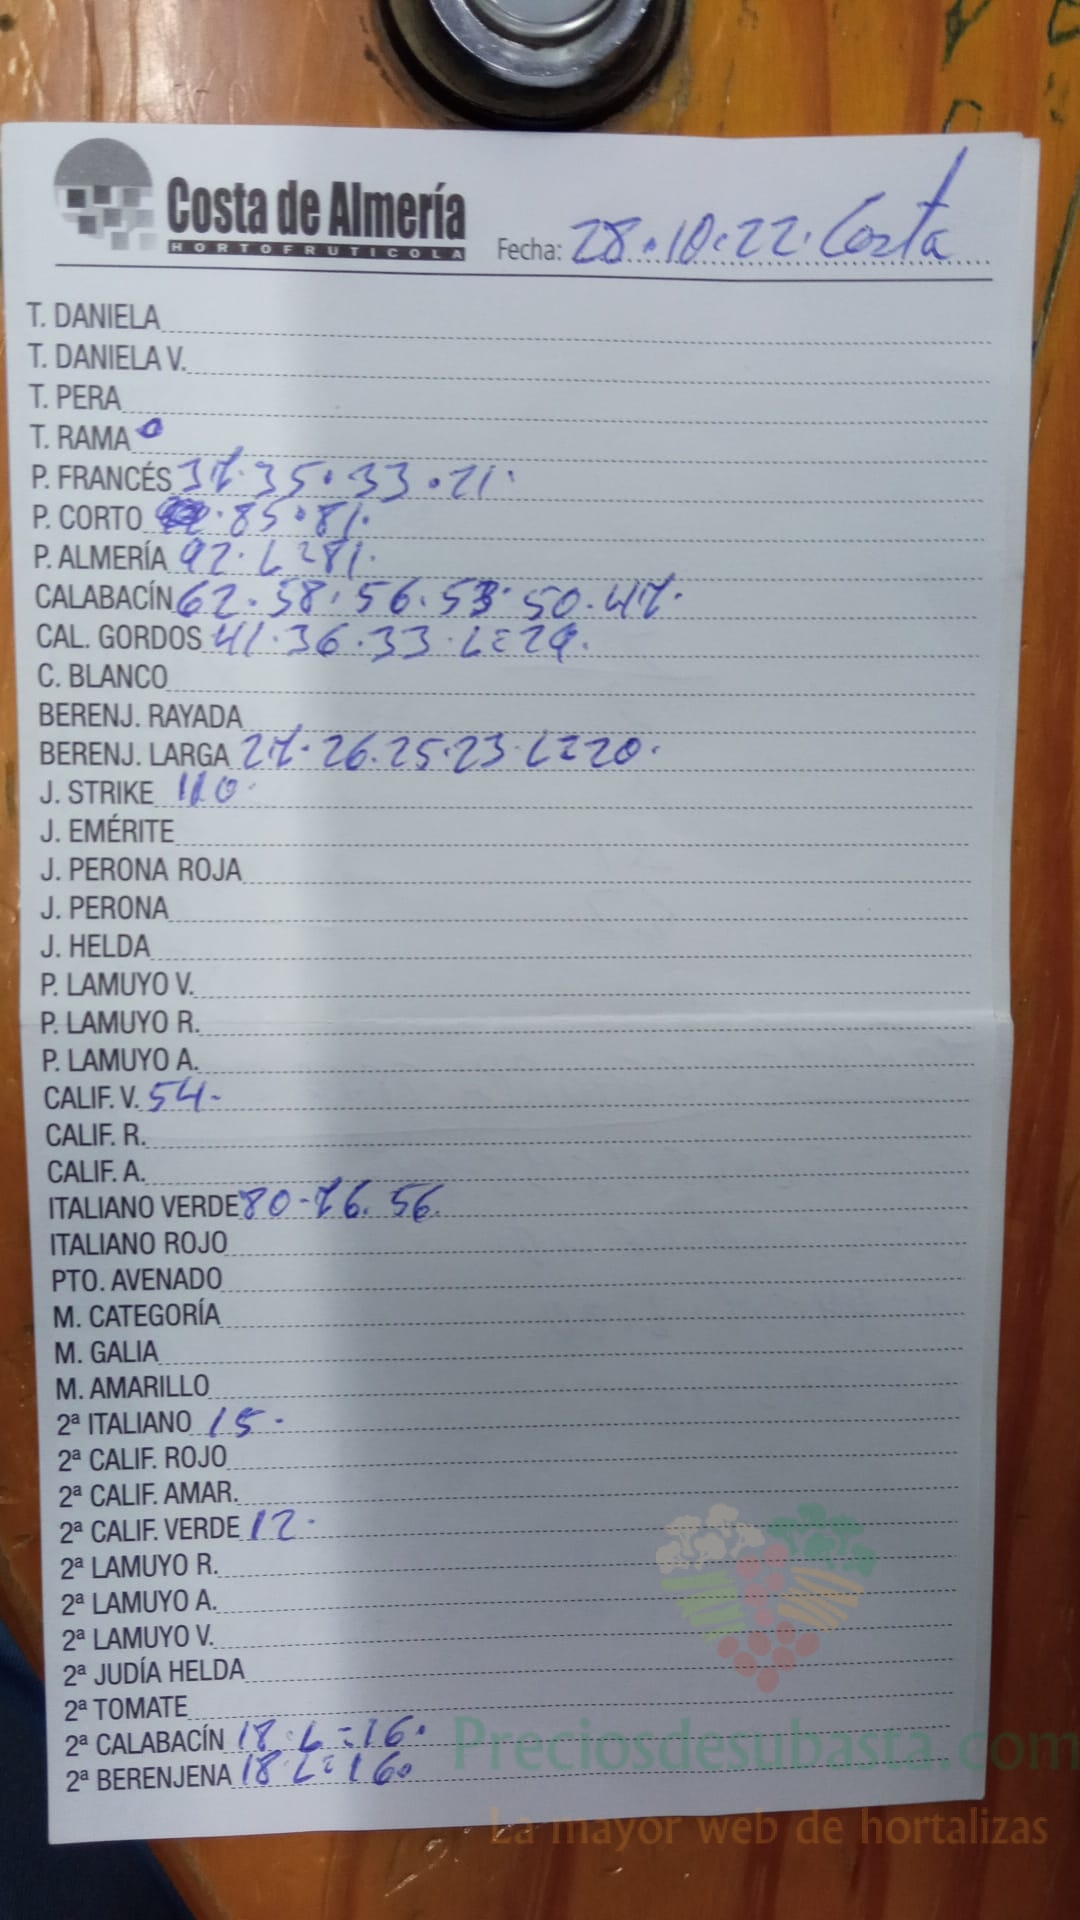 Costa de Almería
HORTOFRUTICOLA
Fecha: 28.10.22. Costa
T. DANIELA
T. DANIELA V.
T. PERA
T. RAMA
P. FRANCÉS 37.35.33.21.
P. CORTO .85.81.
P. ALMERÍA 92. L=81.
CALABACÍN 62.58.56.53.50.47.
CAL. GORDOS 41.36.33.L=29.
C. BLANCO
BERENJ. RAYADA
BERENJ. LARGA 27.26.25.23 L=20.
J. STRIKE 110.
J. EMÉRITE
J. PERONA ROJA
J. PERONA
J. HELDA
P. LAMUYO V.
P. LAMUYO R.
P. LAMUYO A.
CALIF. V. 54-
CALIF. R.
CALIF. A.
ITALIANO VERDE 80-76.56.
ITALIANO ROJO
PTO. AVENADO
M. CATEGORÍA
M. GALIA
M. AMARILLO
2ª ITALIANO 15-
2ª CALIF. ROJO
2ª CALIF. AMAR.
2ª CALIF. VERDE 12.
2ª LAMUYO R.
2ª LAMUYO A.
2ª LAMUYO V.
2ª JUDÍA HELDA
2ª TOMATE
2ª CALABACÍN 18.L=16.
2ª BERENJENA 18 L=16.
Preciosdesubasta.com
La mayor web de hortalizas